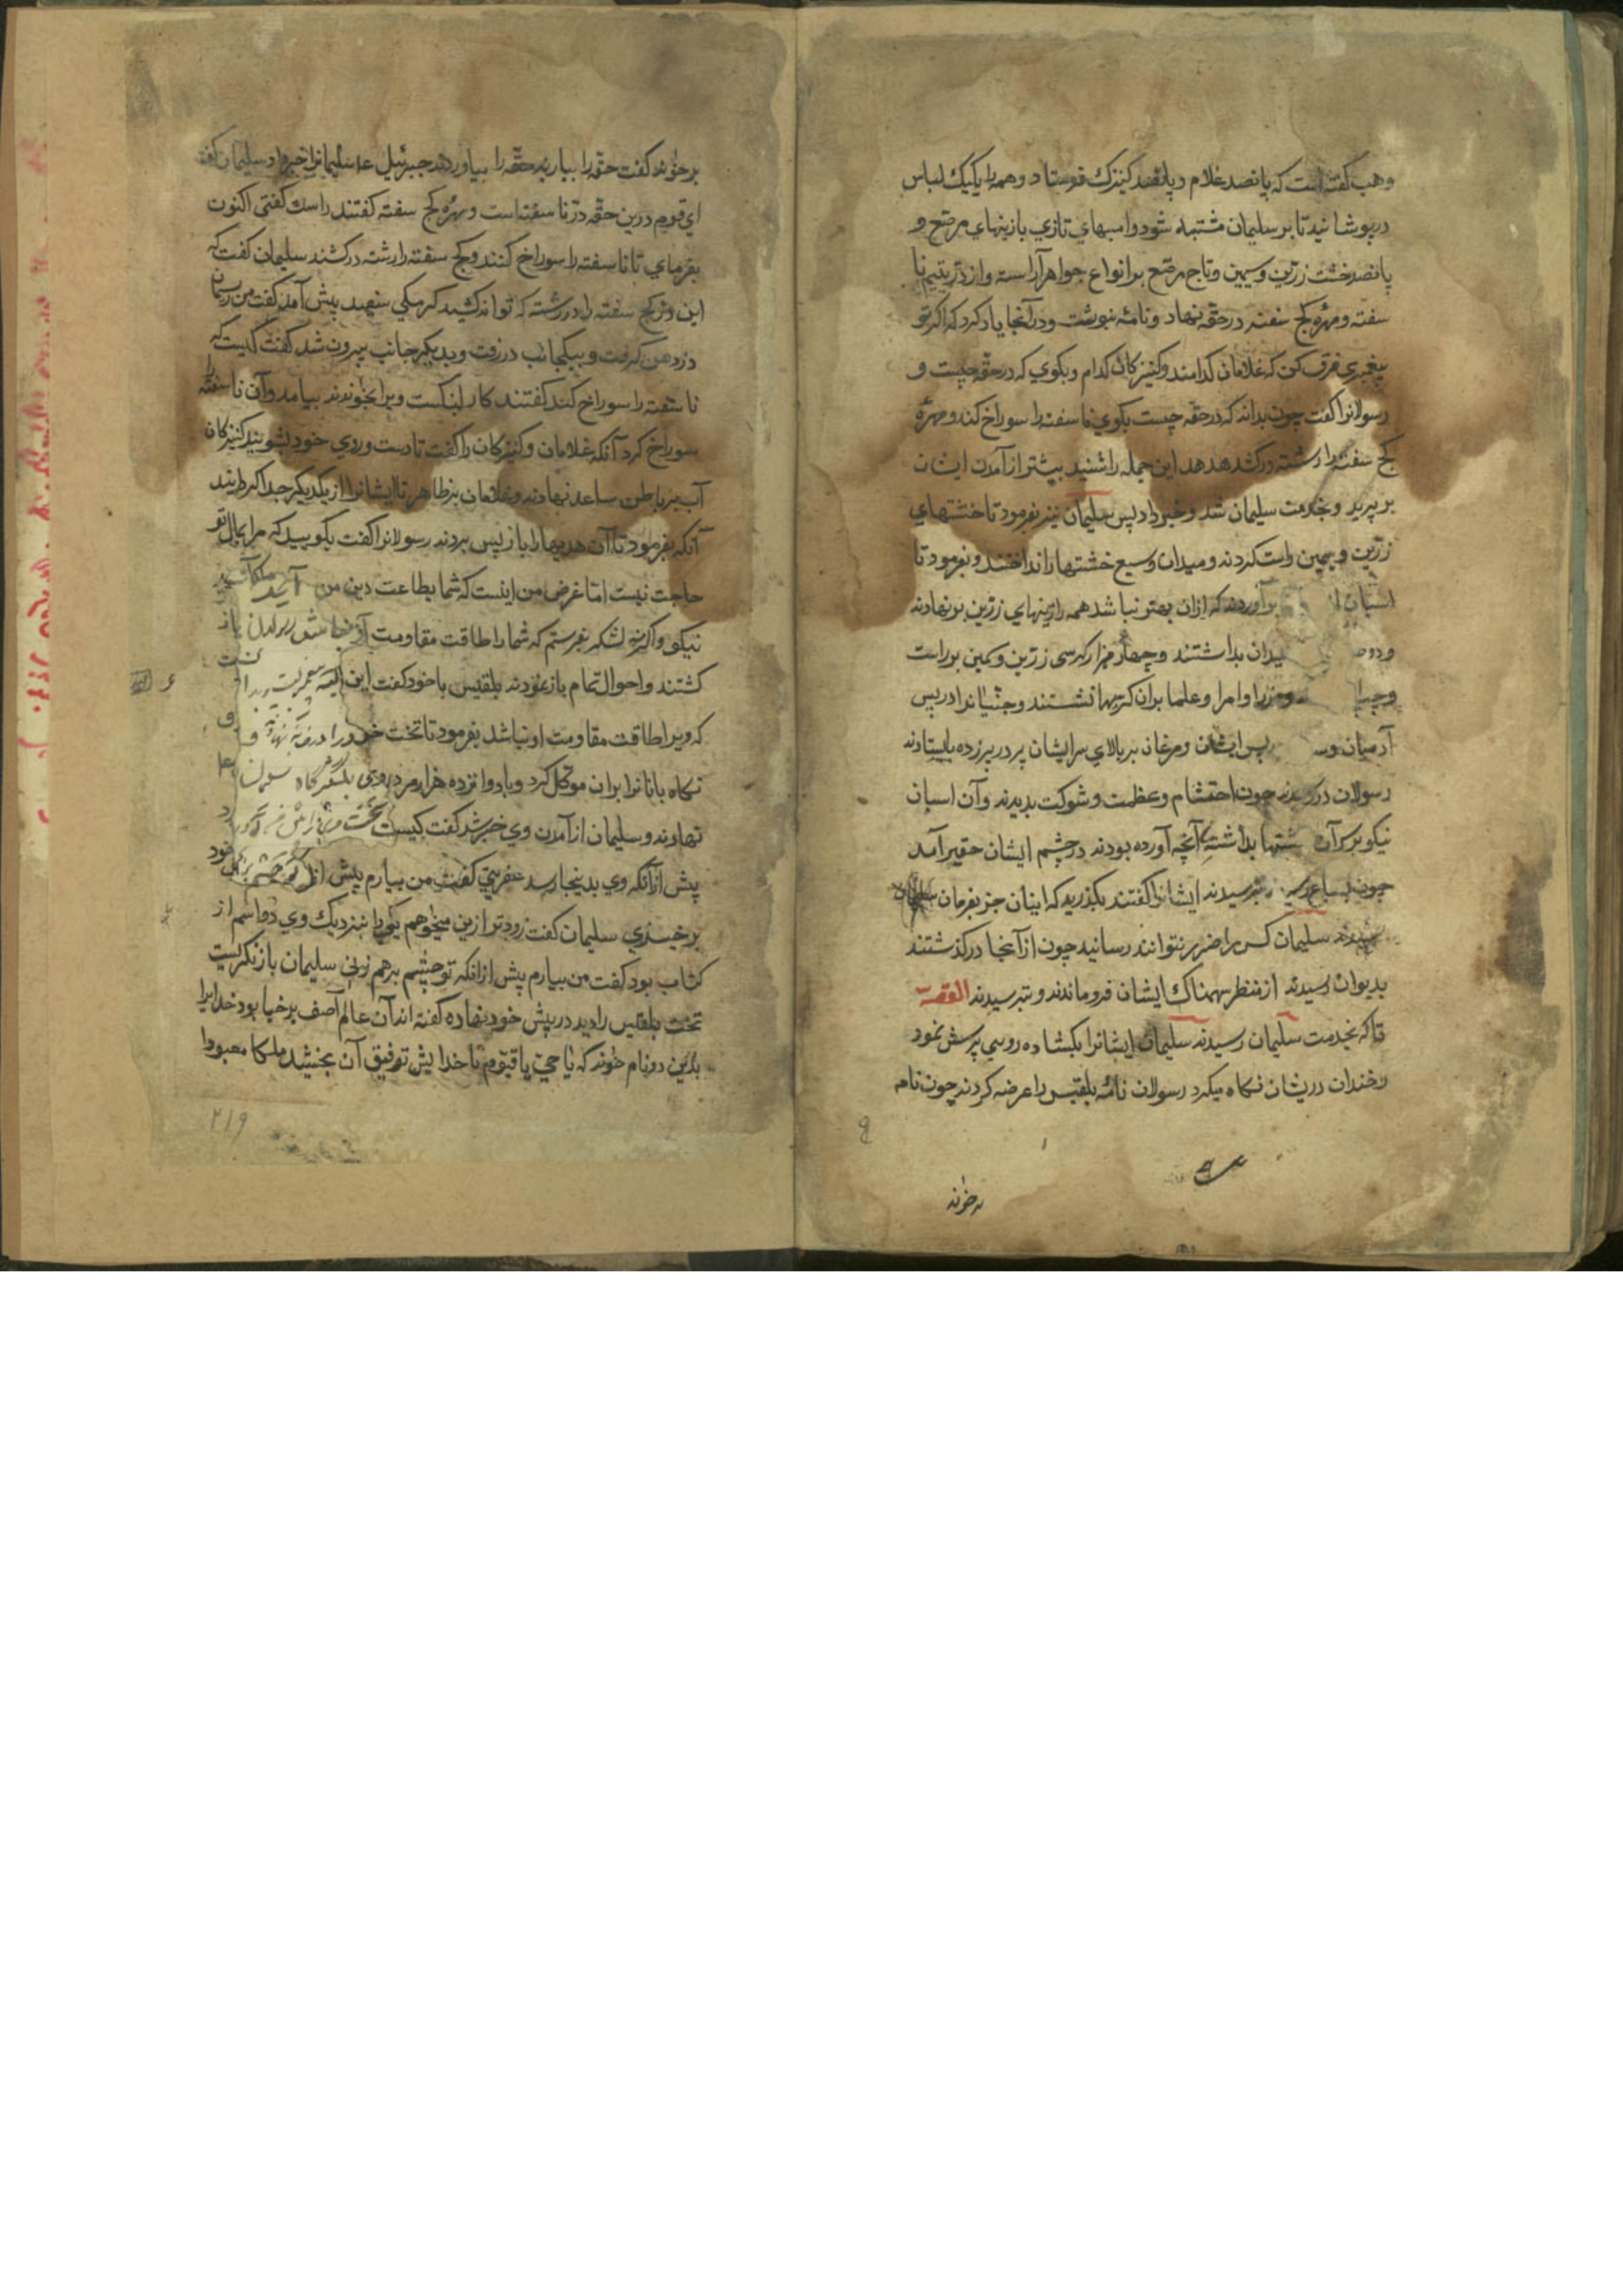 وهب گفته است که پانصد غلام و پانصد کنیزک فرستاد و همه را یکیک لباس
درپوشانید تا بر سلیمان مشتبه شود و اسبهای تازی با زینهای مرصع و
پانصد خشت زرین و سیمین و تاج مرصع بر انواع جواهر آراسته و از در یتیم نا
سفته و مهره کج سفته در حقه نهاد و نامه نبوشت و در آنجا یاد کرد که اگر تو
پیغمبری فرق کن که غلامان کدامند و کنیزکان کدام و بگوی که در حقه چیست و
رسولانرا گفت چون بداند که در حقه چیست بگوی نا سفته را سوراخ کند و مهره
کج سفته را رشته درکشد هدهد این جمله را شنید پیشتر از آمدن ایشان
بر پرید و بخدمت سلیمان شد و خبر داد پس سلیمان نیز بفرمود تا خشتهای
زرین و سیمین راست کردند و میدان وسیع خشتها را انداختند و بفرمود تا
اسبان برآوردند که ازان بهتر نباشد همه را زینهای زرین بر نهادند
میدان بداشتند و چهار هزار کرسی زرین و سیمین بر راست
وزرا و امرا و علما بران کرسیها نشستند و جنیانرا در پس
آدمیان پس ایشان و مرغان بر بالای سر ایشان پر در پر زده بایستادند
رسولان در رسیدند چون احتشام و عظمت و شوکت بدیدند و آن اسبان
نیکو بر آن خشتها بداشته آنچه آورده بودند در چشم ایشان حقیر آمد
چون بسباع بترسیدند ایشانرا گفتند بگذرید که اینان جز بفرمان
سلیمان کس را ضرر نتوانند رسانید چون از آنجا درگذشتند
بدیوان رسیدند از منظر سهمناک ایشان فرو ماندند و بترسیدند القصه
تا که بخدمت سلیمان رسیدند سلیمان ایشانرا بگشاده رویی پرسش نمود
و خندان دریشان نگاه میکرد رسولان نامه بلقیس را عرضه کردند چون نامه
برخوند
برخوند گفت حقه را بیارید حقه را بیاوردند جبرئیل ع سلیمانرا خبر داد سلیمان گفت
ای قوم درین حقه در نا سفته است و مهره کج سفته گفتند راست گفتی اکنون
بفرمای تا نا سفته را سوراخ کنند و کج سفته را رشته درکشند سلیمان گفت که
این در کج سفته را در رشته که تواند کشید کرمکی سفید پیش آمد گفت من ریسمان
در دهن گرفت و بیکجانب در رفت و بدیگر جانب بیرون شد گفت کیست که
نا سفته را سوراخ کند گفتند کار ویرا بخوندند بیامد و آن نا سفته را
سوراخ کرد آنکه غلامان و کنیزکان را گفت تا دست و روی خود بشویند کنیزکان
آب بر باطن ساعد نهادند و غلامان بر ظاهر تا ایشانرا از یکدیگر جدا کردانید
آنکه بفرمود تا آن هدیها را باز پس بردند رسولانرا گفت بگویید که مرا بمال تو
حاجت نیست اما غرض من اینست که شما بطاعت دین من آیید
نیکو و اگر نه لشکر بفرستم که شما را طاقت مقاومت آن نباشد رسولان باز
گشتند و احوال تمام باز نمودند بلقیس با خود گفت این
که ویرا طاقت مقاومت او نباشد بفرمود تا تخت خود را در
نگاه بانانرا بران موکل کرد و با دوانزده هزار مرد روی بلشکرگاه سلیمان
نهادند و سلیمان از آمدن وی خبر شد گفت کیست تخت
پیش از آنکه وی بدینجا رسد عفریتی گفت من بیارم پیش از آنکه
برخیزی سلیمان گفت زودتر ازین میخواهم یکی را بنزدیک وی دو اسم از
کتاب بود گفت من بیارم پیش ازانکه تو چشم برهم زنی سلیمان باز نگریست
تخت بلقیس را دید در پیش خود نهاده گفته اند آن عالم آصف برخیا بود خدایرا
بدین دو نام خوند که یا حی یا قیوم تا خدایش توفیق آن بخشید ملکا معبودا
۲۱۹